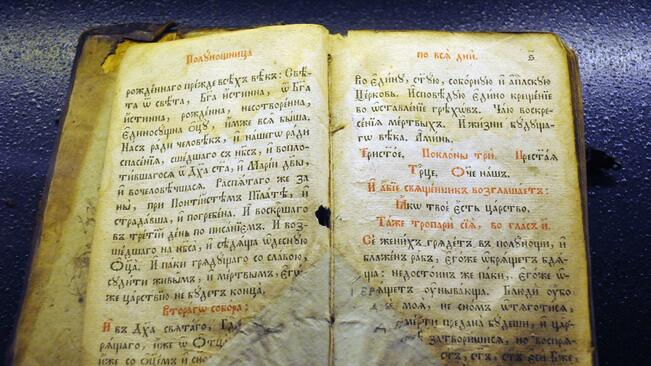 Полꙋнощница
рожде́ннаго пре́жде всѣ́хъ вѣ̑къ: Свѣ́-
та ѿ свѣ́та, Бг҃а и҆́стинна, ѿ Бг҃а
и҆́стинна, рожде́нна, несотворе́нна,
Е҆диносꙋ́щна Оц҃ꙋ̀, и҆́мже всѧ̑ бы́ша.
На́съ ра́ди человѣ̑къ, и҆ на́шегѡ ра́ди
спасе́нїѧ, сше́дшаго съ нб҃съ, и҆ вопло-
ти́вшагосѧ ѿ Дх҃а ст҃а, и҆ Марі́и дв҃ы,
и҆ вочеловѣ́чшасѧ. Распѧ́таго же за
ны̀, при Понті́йстѣмъ Пїла́тѣ, и҆
страда́вша, и҆ погребе́на. И҆ воскр҃шаго
въ тре́тїй де́нь по писа́нїемъ. И҆ воз-
ше́дшаго на нб҃са̀, и҆ сѣдѧ́ща ѡ҆деснꙋ́ю
Оц҃а̀. И҆ па́ки грѧдꙋ́щаго со сла́вою,
сꙋди́ти живы̑мъ, и҆ ме́ртвымъ, є҆гѡ́-
же ца́рствїю не бꙋ́детъ конца̀.
Втора́гѡ собо́ра:
И҆ въ Дх҃а свѧта́го, Гд҃а
рѧ́щаго, и҆́же ѿ Оц҃а̀
и҆́же со Оц҃е́мъ и҆ сн҃о
по всѧ̑ дни̑. ѕ҃
Во є҆ди́нꙋ, ст҃ꙋ́ю, собо́рнꙋю и҆ а҆пⷭ҇лскꙋю
Цр҃ковь. И҆сповѣ́дꙋю є҆ди́но крещє́нїе
во ѡ҆ставле́нїе грѣхѡ́въ. Ча́ю воскре-
се́нїѧ ме́ртвыхъ. И҆ жи́зни бꙋ́дꙋща-
гѡ вѣ́ка. А҆ми́нь.
Трист҃о́е, Покло́ны трѝ. Прест҃а́ѧ
Трⷪ҇це, О҆́ч҃е на́шъ.
И҆ а҆́бїе сщ҃е́нникъ возглаша́етъ:
Ꙗ҆́кѡ твоѐ є҆́сть ца́рство.
Та́же тропари̑ сїѧ̑, во гла́съ и҃
Се̑ жени́хъ грѧде́тъ въ полꙋ́нощи, и҆
бл҃же́нъ ра́бъ, є҆го́же ѡ҆брѧ́щетъ бдѧ́-
ща: недосто́инъ же па́ки, є҆го́же ѡ҆-
брѧ́щетъ ᲂу҆ныва́юща. Блюдѝ ᲂу҆́бо
моѧ̀, не сно́мъ ѡ҆тѧготи́сѧ,
сме́рти предана̀ бꙋ́деши, и҆ ца́р-
затвори́шисѧ, но воспрѧ-
ст҃ъ, ст҃ъ, ст҃ъ є҆сѝ Бж҃е,